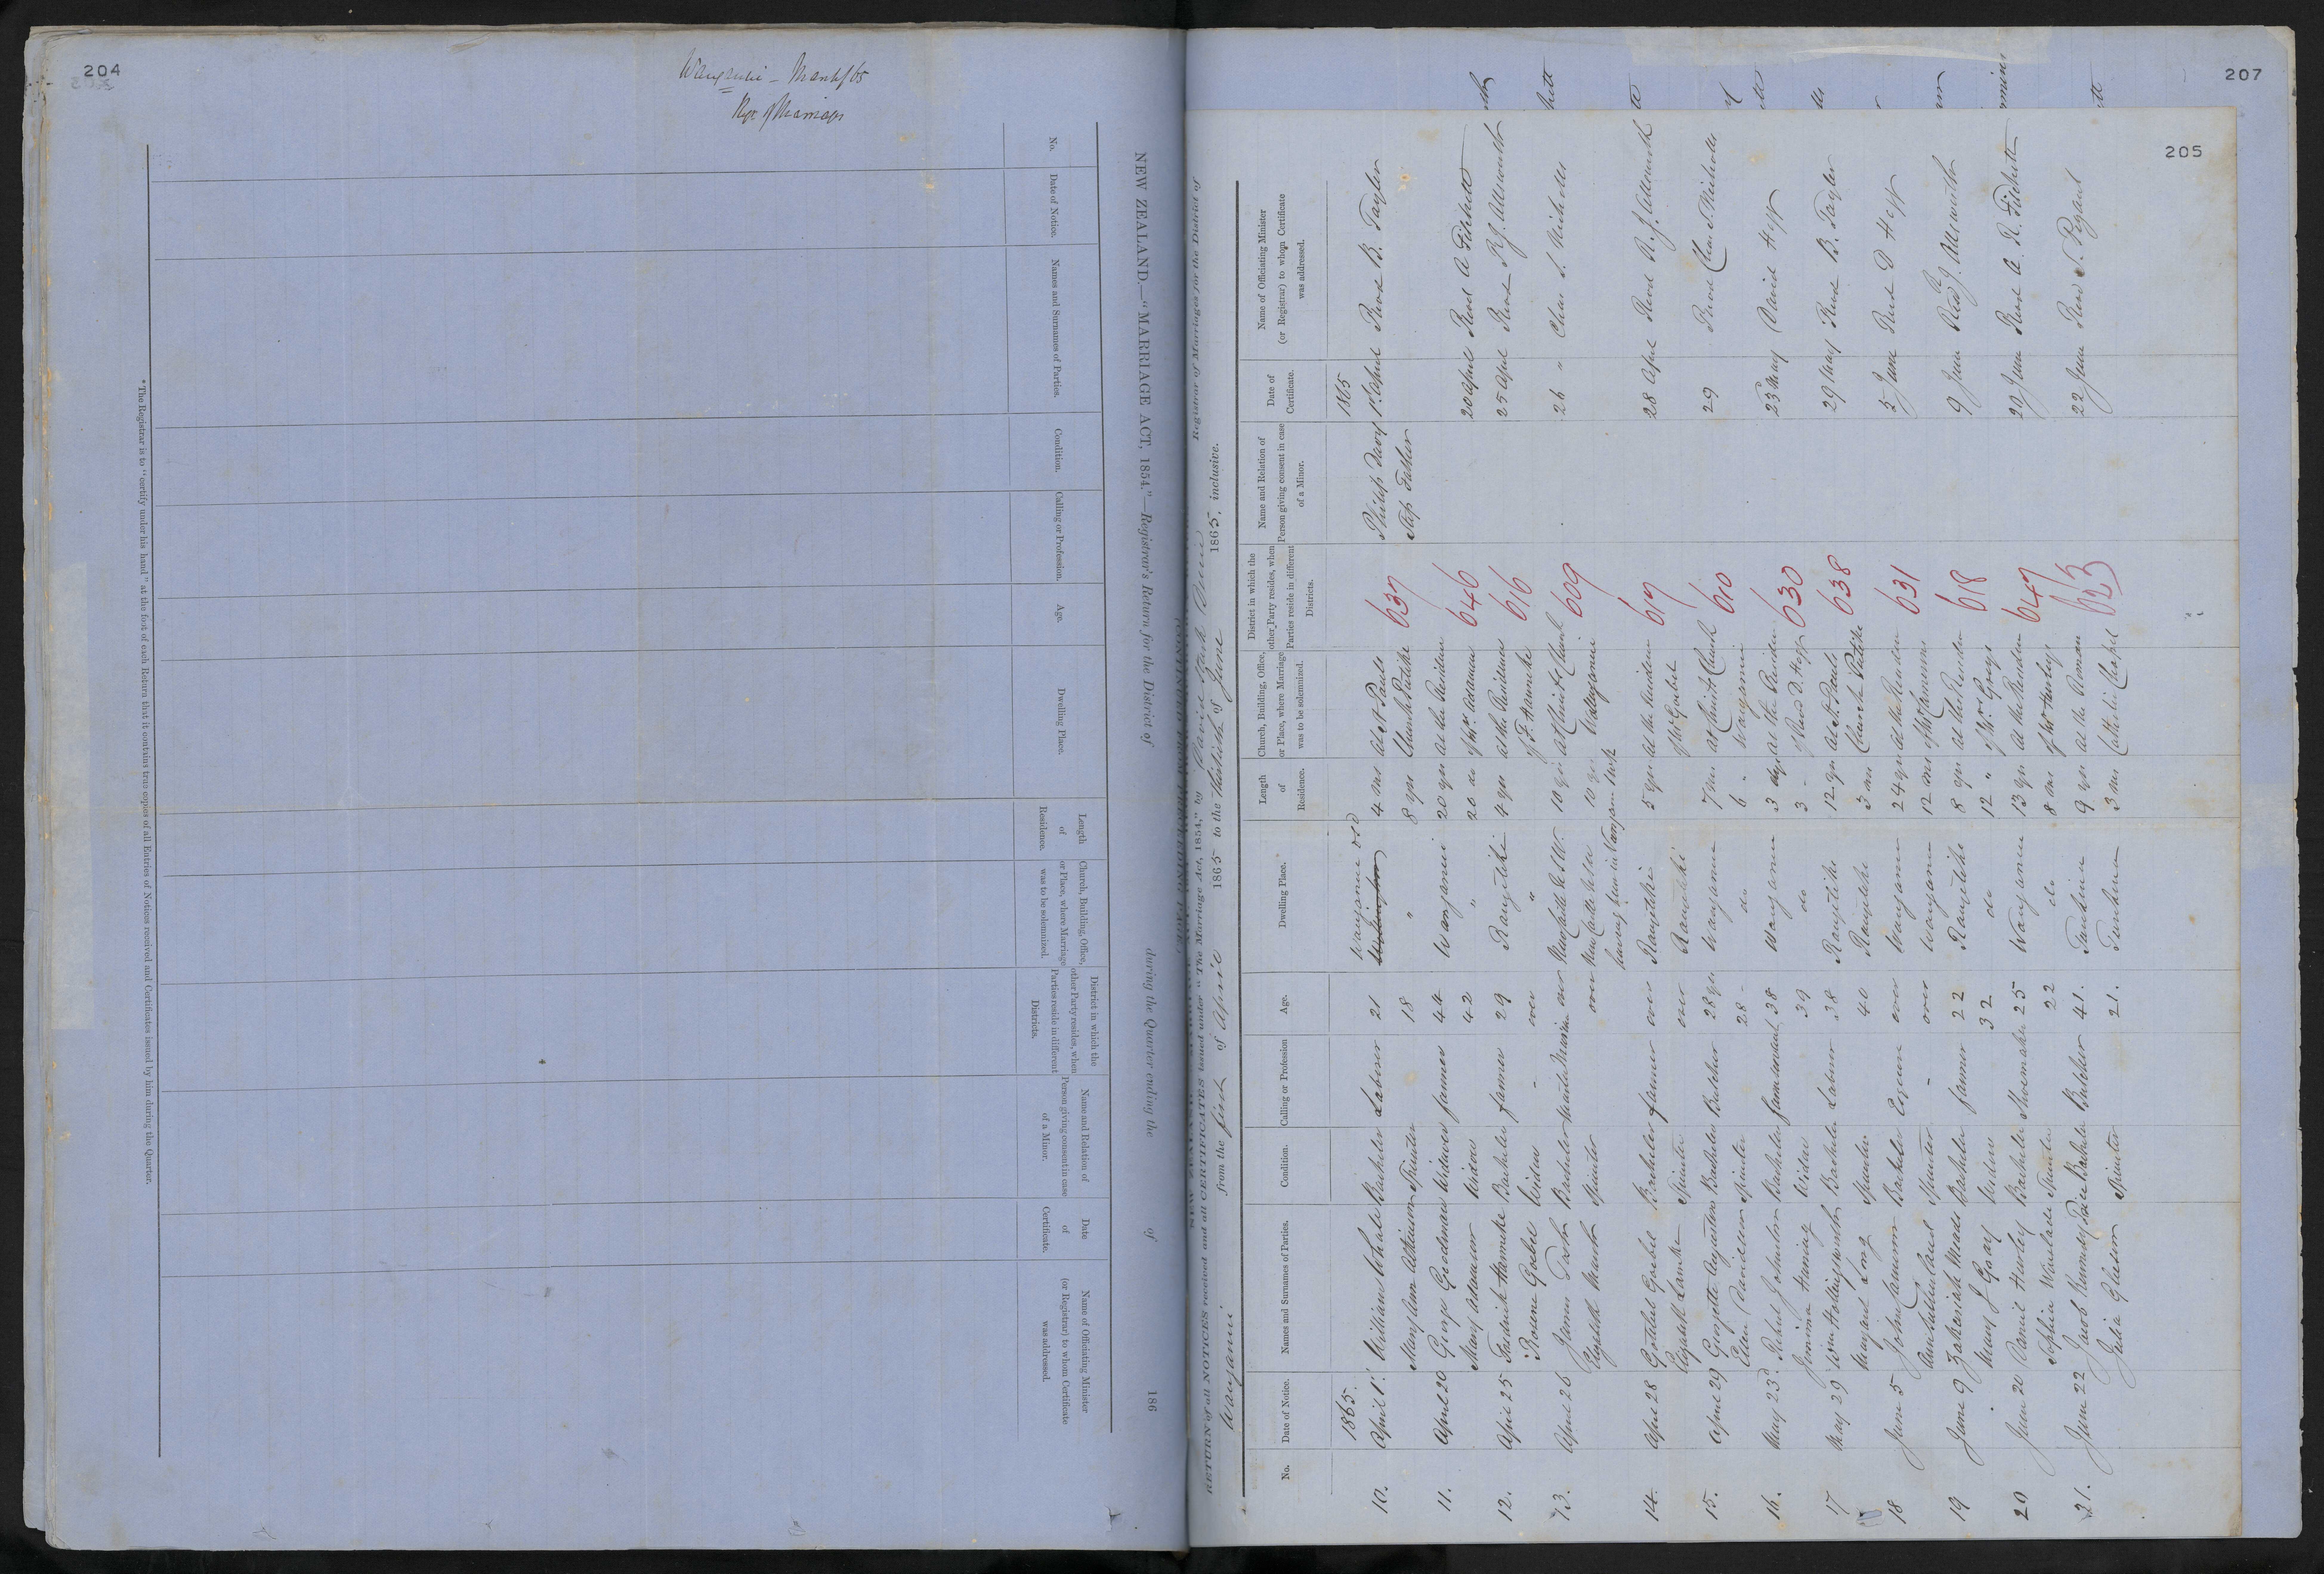 204
Wanganui - March/65
Retn of Marriages
NEW ZEALAND.—"MARRIAGE ACT, 1854."—Registrar's Return for the District of during the Quarter ending the of 186
No.
Date of Notice.
Names and Surnames of Parties.
Condition.
Calling or Profession.
Age.
Dwelling Place.
Length of Residence.
Church, Building, Office, or Place, where Marriage was to be solemnized.
District in which the other Party resides, when Parties reside in different Districts.
Name and Relation of Person giving consent in case of a Minor.
Date of Certificate.
Name of Officiating Minister (or Registrar) to whom Certificate was addressed.
* The Registrar is to "certify under his hand" at the foot of each Return that it contains true copies of all Entries of Notices received and Certificates issued by him during the Quarter.
207
205
RETURN of all NOTICES received and all CERTIFICATES issued under "The Marriage Act, 1854," by Registrar of Marriages for the District of
Wanganui from the first of April 1865 to the thirtieth of June 1865, inclusive.
No.
Date of Notice.
Names and Surnames of Parties.
Condition.
Calling or Profession
Age.
Dwelling Place.
Length of Residence.
Church, Building, Office, or Place, where Marriage was to be solemnized.
District in which the other Party resides, when Parties reside in different Districts.
Name and Relation of Person giving consent in case of a Minor.
Date of Certificate.
Name of Officiating Minister (or Registrar) to whom Certificate was addressed.
1865. 1865
10. April 1st William Bachelor Laborer 21 Wanganui 4 ms at St Pauls 637 Philip Davy 1st April Revd B. Taylor
Mary Ann Atkinson Spinster 18 " 8 yrs Church Putiki Step Father
11. April 20 George Goodman Widower farmer 44 Wanganui 20 yrs at the Residence 646 20 April Revd A Fitchett
Mary Adamson Widow 42 " 20 do of Mr. Adamson
12. April 25 Fredrick Hammeke Bachelor farmer 29 Rangitikei 4 yrs at the Residence 616 25 April Revd R J. Allsworth
Rosene Goebel Widow - over " of F. Hammeke
13. April 26 James Bachelor over New Castle N.S.W. 10 yrs at Christ Church 609 26 " Chas S. Nicholls
Elizabeth Spinster over New Castle 10 yrs Wanganui
having been in Wanganui
14. April 28 Gottlieb Goebel Bachelor farmer over Rangitikei 5 yrs at the Residence 617 28 April Revd R. J. Allsworth
Elizabeth Spinster over of Mr Goebel
15. April 29 Bachelor Butcher 28 yrs Wanganui 7 ms at Christ Church 610 29 Revd Chas S. Nicholls
Ellen Spinster 28 - do 6 " Wanganui
16. May 23 Robert Johnston Bachelor 38 Wanganui 3 days at the Residence 630 23 May David Hogg
Jemima Widow 39 do 3 - of Revd D. Hogg
17 May 29 Wm Hollingsworth Bachelor Laborer 38 Rangitikei 12 yrs at St. Pauls 638 29 May Revd B. Taylor
Margaret Long Spinster 40 Rangitikei 3 ms Church Putiki
18 June 5 John Cameron Bachelor over Wanganui 24 yrs at the Residence 631 5 June Revd D Hogg
Spinster - over Wanganui 12 ms of Mr Cameron
19 June 9 Zakariah Meads Bachelor farmer 22 Rangitikei 8 yrs at the Residence 618 9 June Revd R J. Allsworth
Mary J Gray Widow 32 do 12 " of Mrs Grays
20 June 20 Daniel Hurley Bachelor Shoemaker 25 Wanganui 13 yrs at the Residence 647 20 June Revd A. R. Fitchett
Sophia Spinster 22 do 8 ms of Mr Hurleys
21. June 22 Jacob Kennedy Bachelor Butcher 41. 9 yrs at the Roman 623 22 June Revd S. Pezant
Julia Gleeson Spinster 21. 3 ms Catholic Chapel